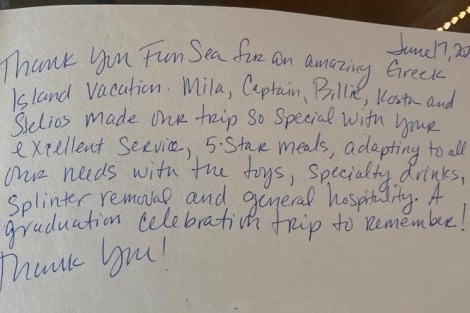 June 17, 20
Thank you Fun Sea for an amazing Greek
Island vacation. Mila, Captain, Billie, Kosta and
Stelios made our trip so special with your
excellent service, 5-Star meals, adapting to all
our needs with the toys, specialty drinks,
splinter removal and general hospitality. A
graduation celebration trip to remember!
Thank you!